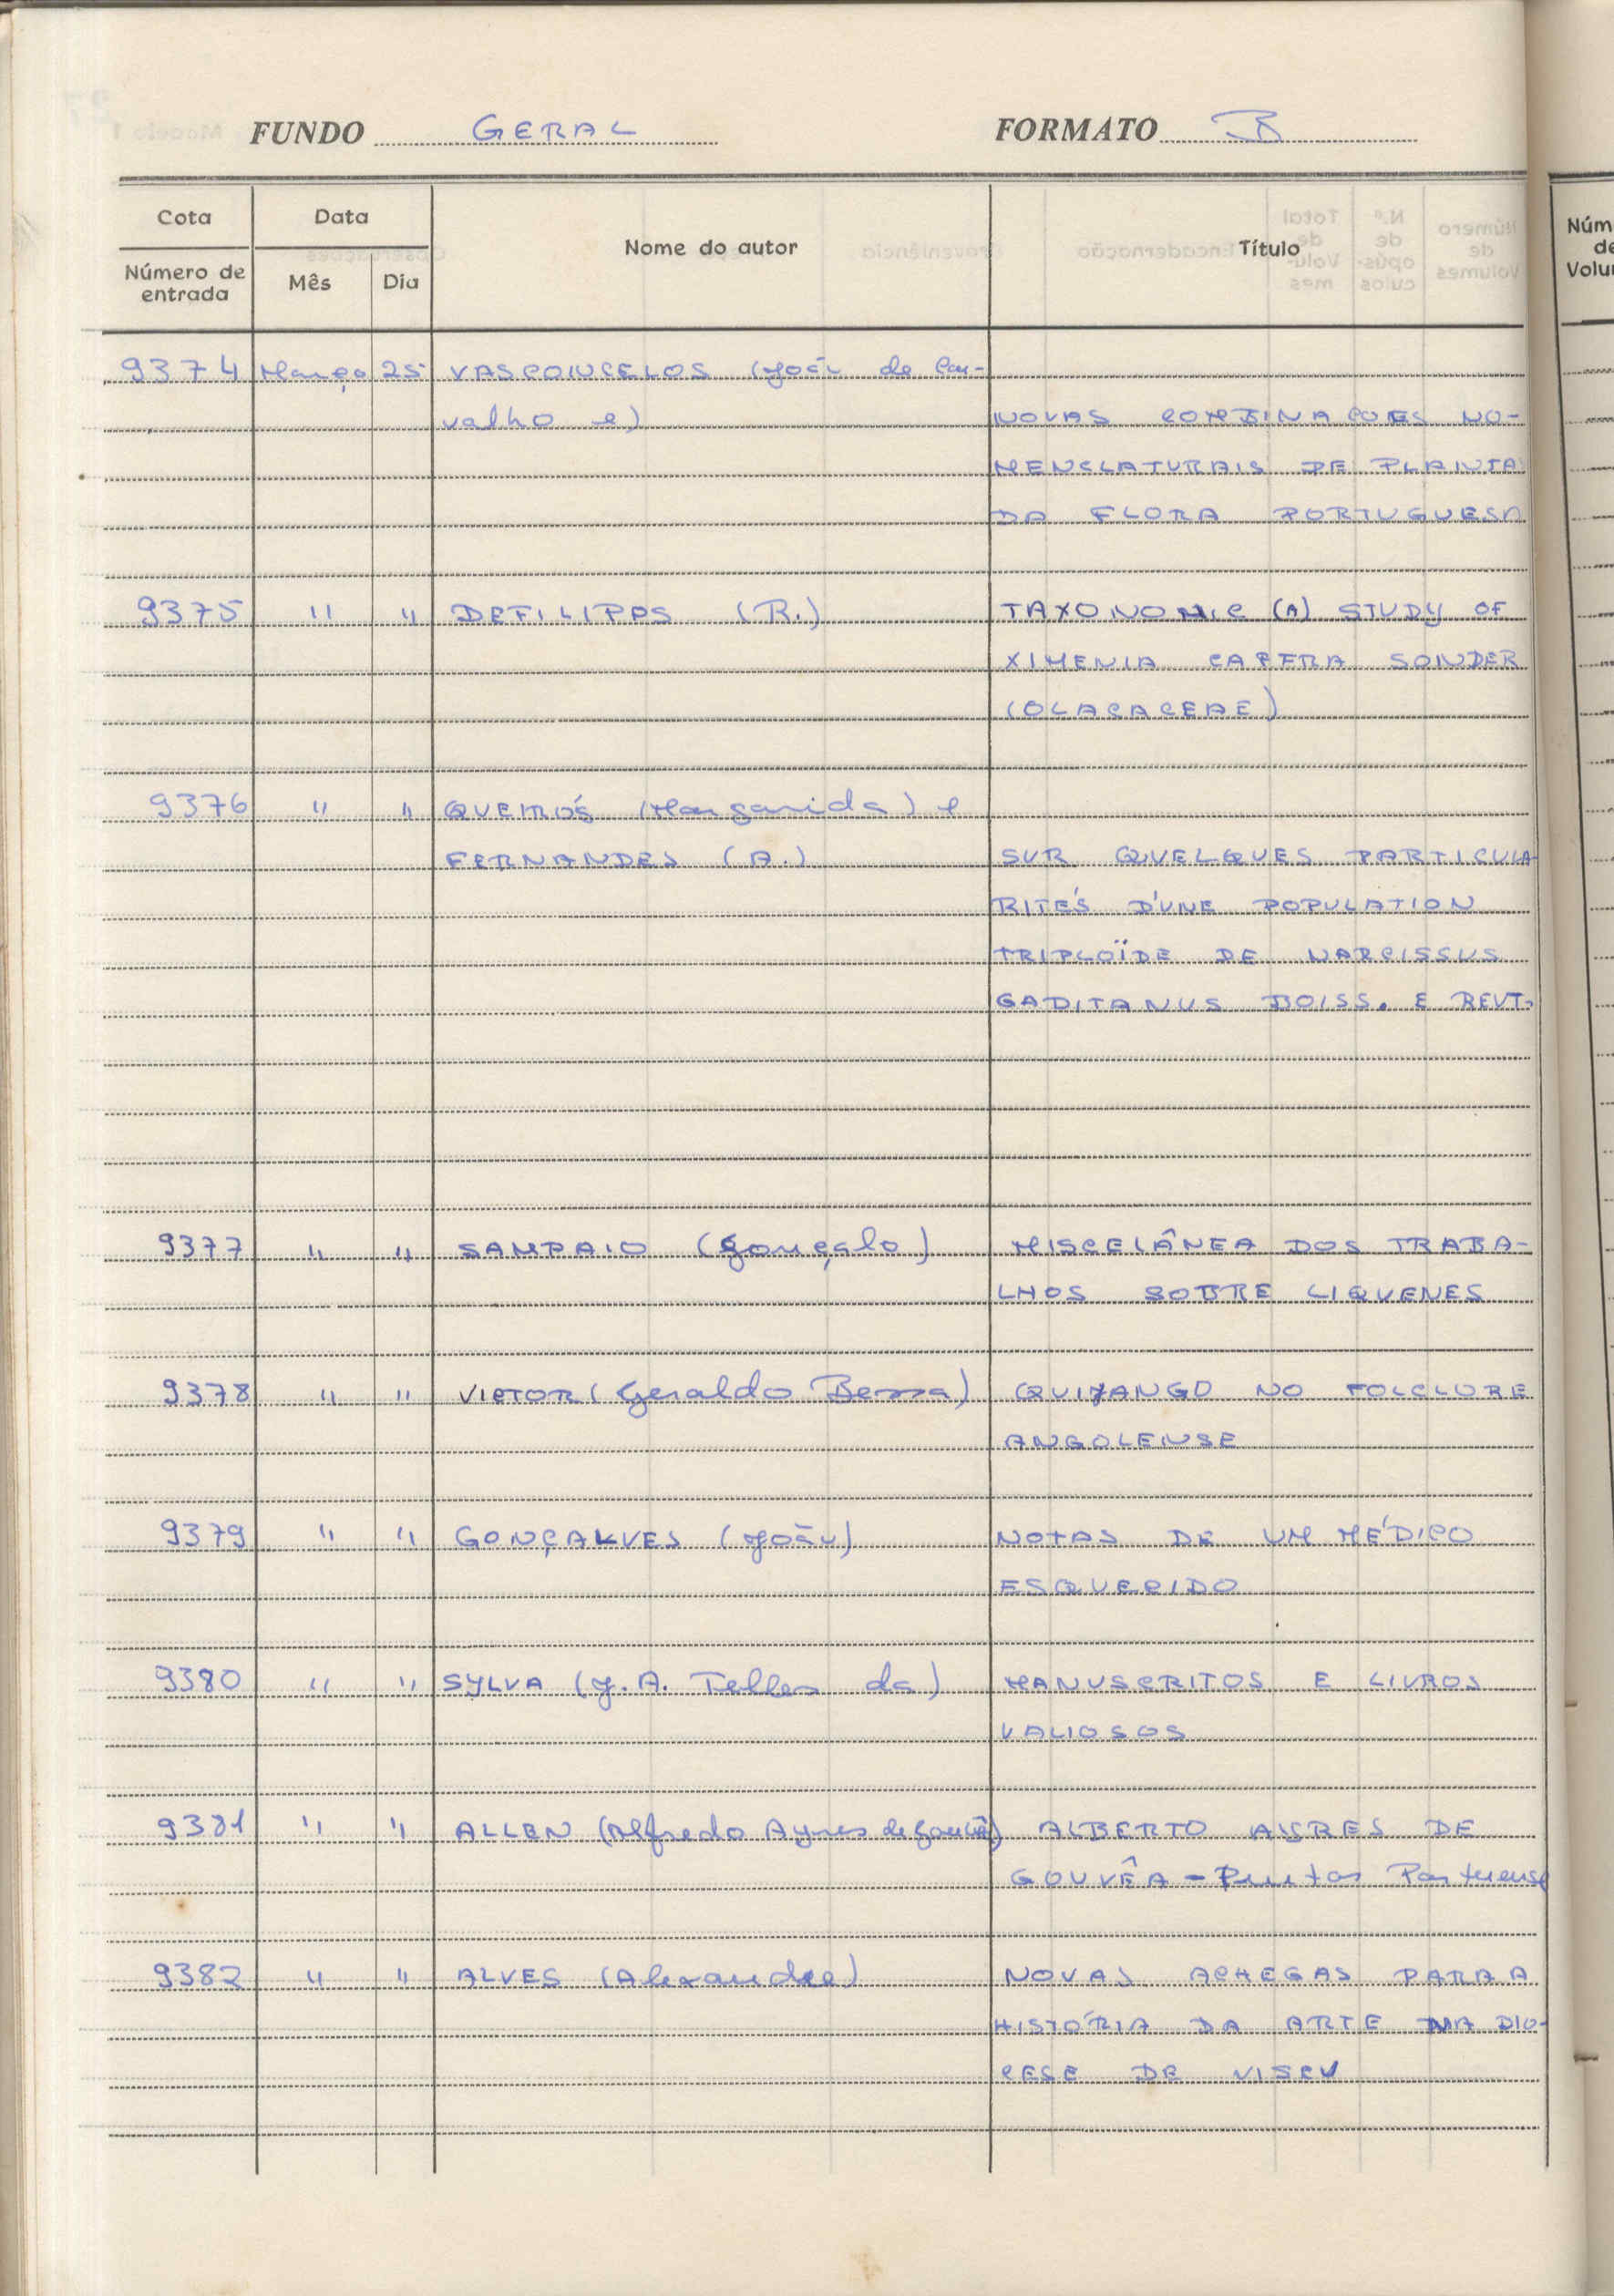 FUNDO GERAL FORMATO B
Cota Data Nome do autor Título
Número de entrada Mês Dia
9374 Março 25 VASCONCELOS (João de Car-
valho e) NOVAS COMBINAÇÕES NO-
MENCLATURAIS DE PLANTA
DA FLORA PORTUGUESA
9375 " " DEFILIPPS (R.) TAXONOMIC (A) STUDY OF
XIMENIA CAFFRA SONDER
(OLACACEAE)
9376 " " QUEIRÓS (Margarida) e
FERNANDES (A.) SUR QUELQUES PARTICULA
RITÉS D'UNE POPULATION
TRIPLOÏDE DE NARCISSUS
GADITANUS BOISS. E REUT.
9377 " " SAMPAIO (Gonçalo) MISCELÂNEA DOS TRABA-
LHOS SOBRE LIQUENES
9378 " " VICTOR (Geraldo Bessa) QUIXANGO NO FOLCLORE
ANGOLENSE
9379 " " GONÇALVES (João) NOTAS DE UM MÉDICO
ESQUECIDO
9380 " " SYLVA (J. A. Telles da) MANUSCRITOS E LIVROS
VALIOSOS
9381 " " ALLEN (Alfredo Ayres de Gouvêa) ALBERTO AYRES DE
GOUVÊA - Pintor Portuense
9382 " " ALVES (Alexandre) NOVAS ACHEGAS PARA A
HISTÓRIA DA ARTE NA DIO-
CESE DE VISEU
Núm
de
Volu